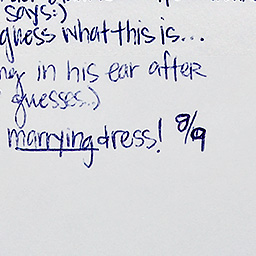 says:)
guess what this is...
in his ear after
guesses.)
marrying dress! 8/9